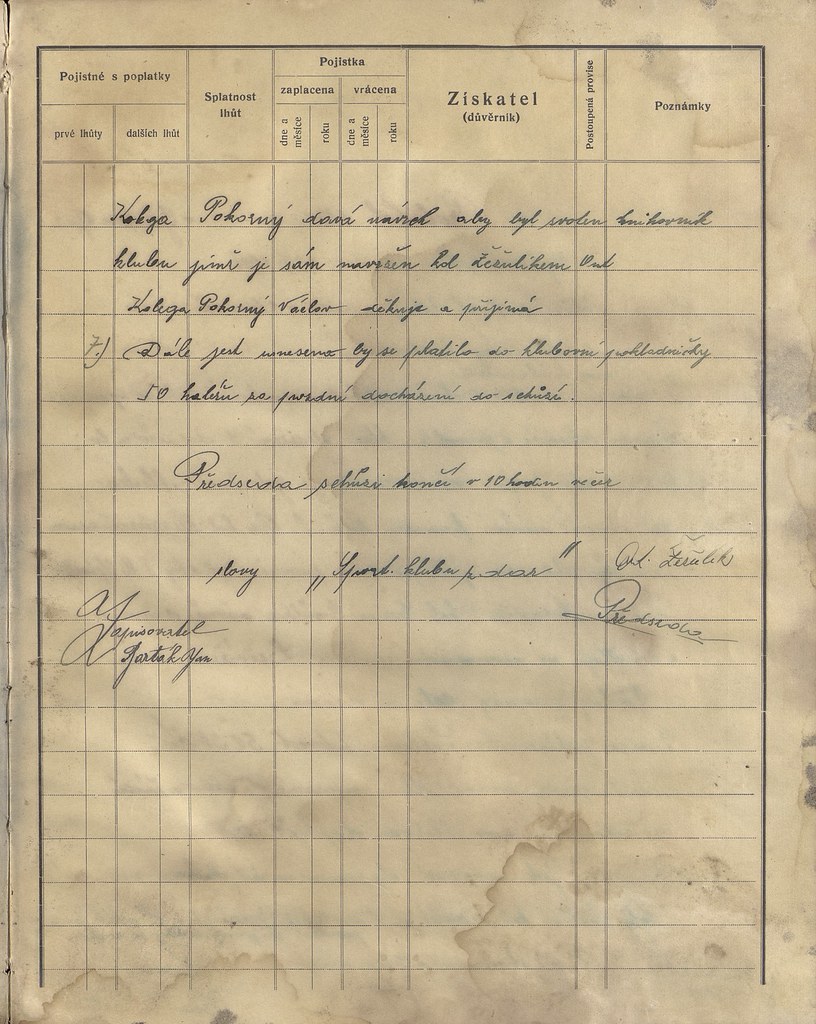 Pojistné s poplatky
Splatnost lhůt
Pojistka
Získatel
(důvěrník)
Postoupená provise
Poznámky
prvé lhůty
dalších lhůt
zaplacena
vrácena
dne a měsíce
roku
dne a měsíce
roku
Kolega Pokorný dává návrh aby byl zvolen knihovník
klubu jímž je sám navržen kol Žežulíkem
Kolega Pokorný Václav děkuje a přijímá
7.) Dále jest usneseno by se platilo do klubovní pokladničky
50 haléřu za pozdní docházení do schůzí.
Předseda schůzi končí v 10 hodin večer
slovy „Sport. klubu z dar"
Žežulík
Předseda
Zapisovatel
Barták Jan